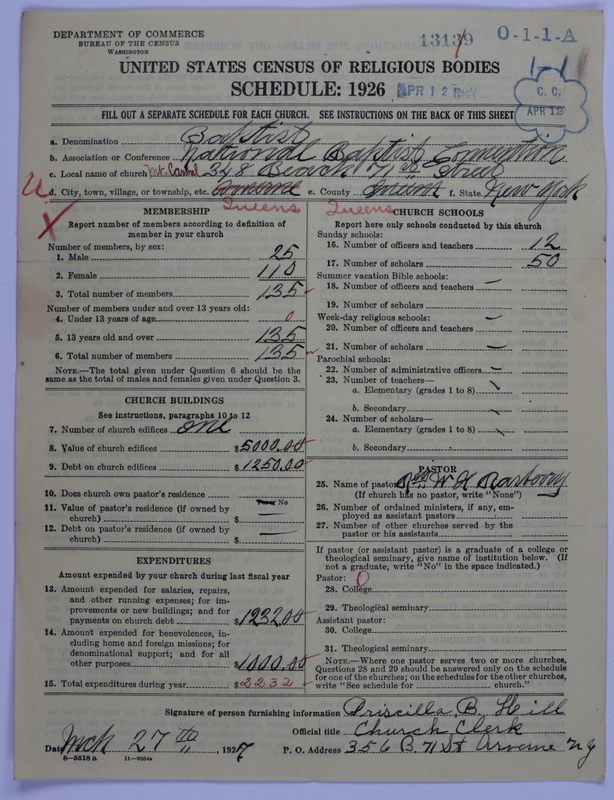 DEPARTMENT OF COMMERCE
BUREAU OF THE CENSUS
WASHINGTON
13139
O-1-1-A
UNITED STATES CENSUS OF RELIGIOUS BODIES
SCHEDULE: 1926
APR 12 Rec'd
1-1
C. C.
APR 12
FILL OUT A SEPARATE SCHEDULE FOR EACH CHURCH. SEE INSTRUCTIONS ON THE BACK OF THIS SHEET
a. Denomination Baptist
b. Association or Conference National Baptist Convention
c. Local name of church Mt. Carmel 348 Beach 71st Street
U d. City, town, village, or township, etc. Arverne e. County f. State New York
Queens Queens
X
MEMBERSHIP
Report number of members according to definition of member in your church
Number of members, by sex:
1. Male 25
2. Female 110
3. Total number of members 135
Number of members under and over 13 years old:
4. Under 13 years of age 0
5. 13 years old and over 135
6. Total number of members 135
NOTE.—The total given under Question 6 should be
same as the total of males and females given under Question 3.
CHURCH BUILDINGS
See instructions, paragraphs 10 to 12
7. Number of church edifices one
8. Value of church edifices $5000.00
9. Debt on church edifices $1250.00
10. Does church own pastor's residence No
11. Value of pastor's residence (if owned by
church) $ —
12. Debt on pastor's residence (if owned by
church) $ —
EXPENDITURES
Amount expended by your church during last fiscal year
13. Amount expended for salaries, repairs,
and other running expenses; for im-
provements or new buildings; and for
payments on church debt $1232.00
14. Amount expended for benevolences, in-
cluding home and foreign missions; for
denominational support; and for all
other purposes $1000.00
15. Total expenditures during year $2232
CHURCH SCHOOLS
Report here only schools conducted by this church
Sunday schools:
16. Number of officers and teachers 12
17. Number of scholars 50
Summer vacation Bible schools:
18. Number of officers and teachers —
19. Number of scholars
Week-day religious schools: —
20. Number of officers and teachers
21. Number of scholars —
Parochial schools:
22. Number of administrative officers —
23. Number of teachers—
a. Elementary (grades 1 to 8)
b. Secondary
24. Number of scholars—
a. Elementary (grades 1 to 8)
b. Secondary
PASTOR
25. Name of pastor Rev. W H Rasberry
(If church has no pastor, write "None")
26. Number of ordained ministers, if any, em-
ployed as assistant pastors
27. Number of other churches served by the
pastor or his assistants
If pastor (or assistant pastor) is a graduate of a college or
theological seminary, give name of institution below. (If
not a graduate, write "No" in the space indicated.)
Pastor: O
28. College
29. Theological seminary
Assistant pastor:
30. College
31. Theological seminary
NOTE.—Where one pastor serves two or more churches,
Questions 28 and 29 should be answered only on the schedule
for one of the churches; on the schedules for the other churches,
write "See schedule for church."
Signature of person furnishing information Priscilla B. Hill
Official title Church Clerk
Date Mch 27th, 1927 P. O. Address 356 B. 71 St Arverne N Y
8-5518a 11-9054a